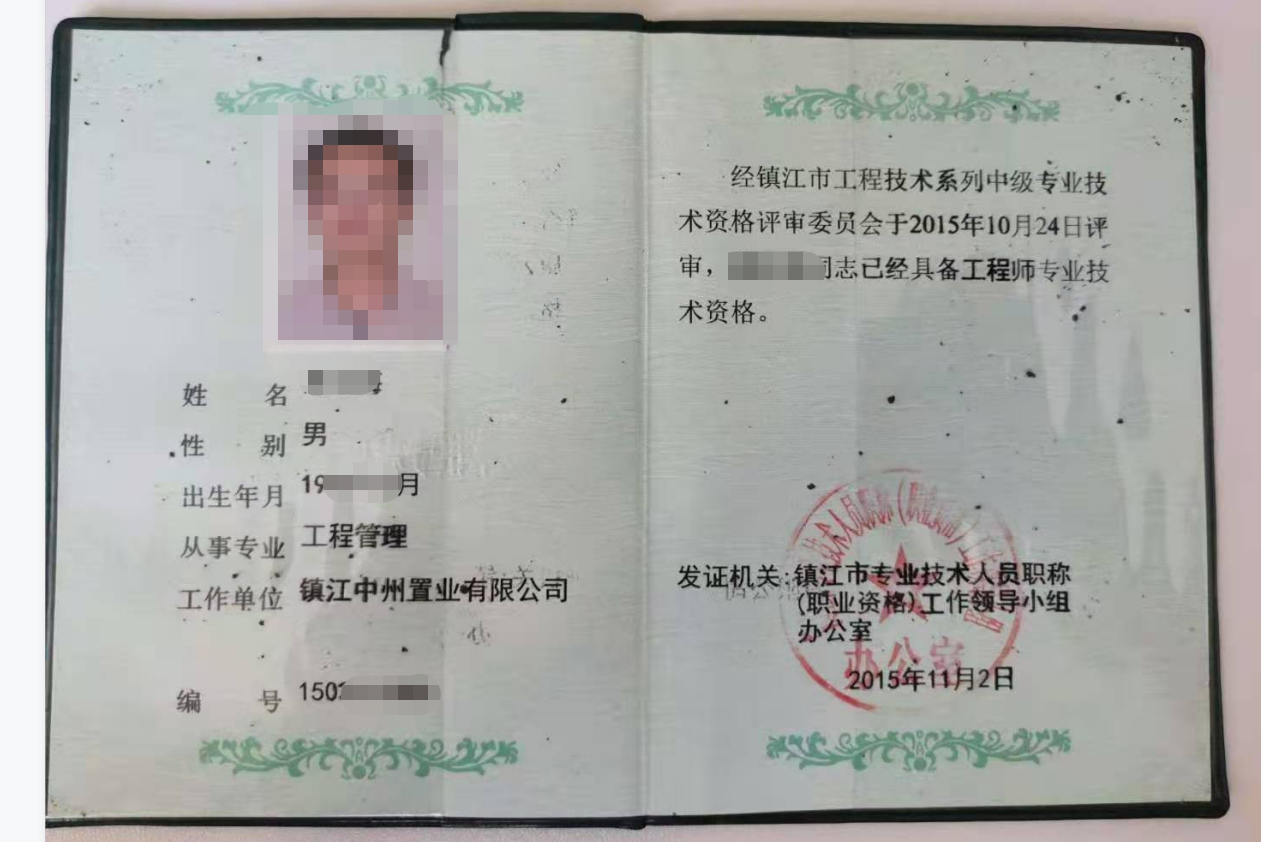 姓 名
性 别 男
出生年月 19 月
从事专业 工程管理
工作单位 镇江中州置业有限公司
编 号 150
经镇江市工程技术系列中级专业技
术资格评审委员会于2015年10月24日评
审， 同志已经具备工程师专业技
术资格。
发证机关:镇江市专业技术人员职称
(职业资格)工作领导小组
办公室
办公室
2015年11月2日